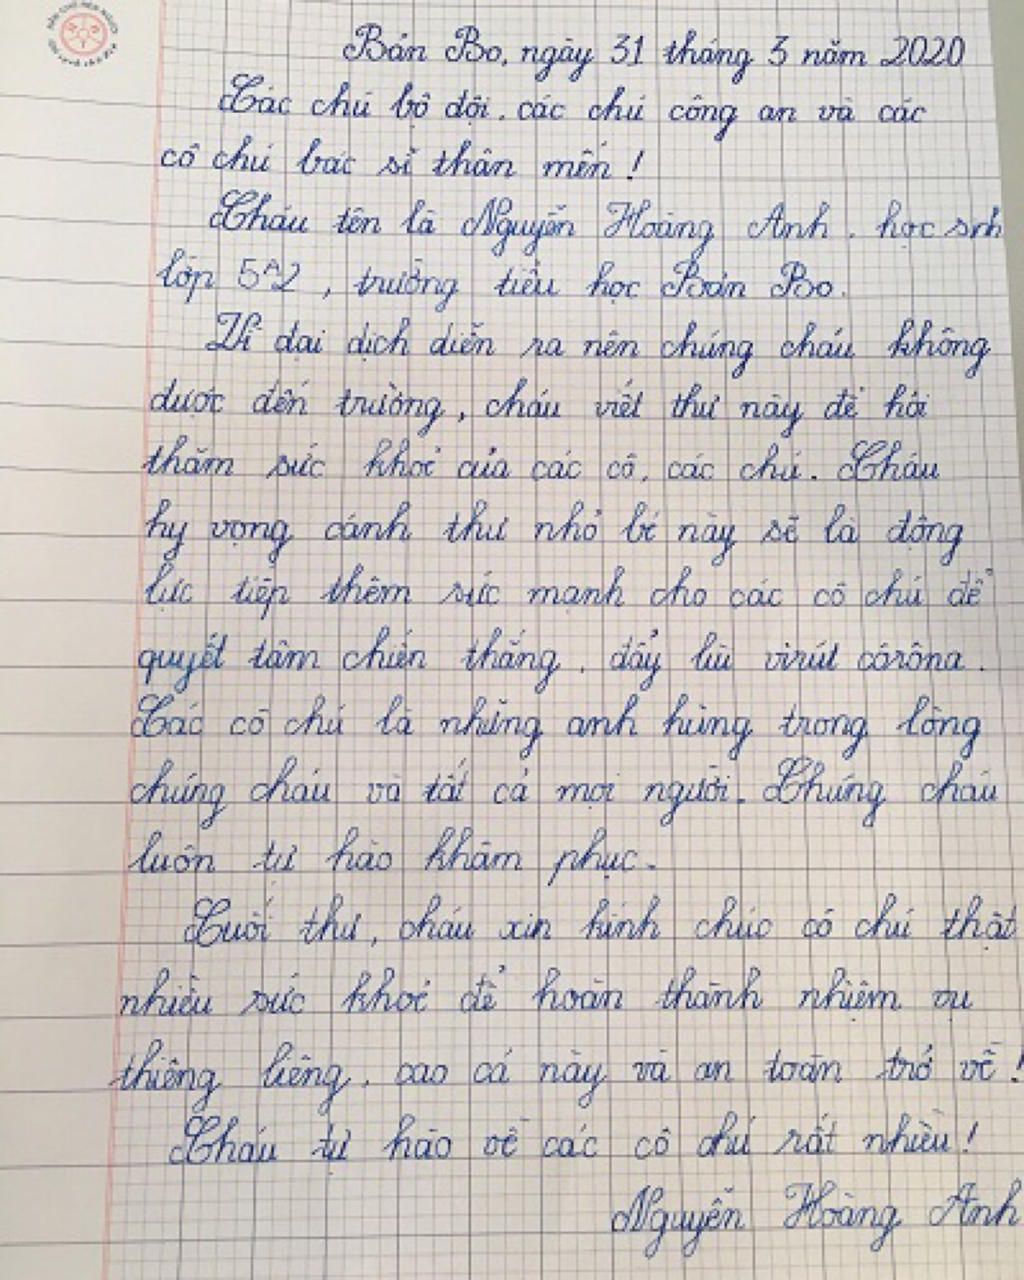 Bản Bo, ngày 31 tháng 3 năm 2020
Các chú bộ đội, các chú công an và các
cô chú bác sĩ thân mến!
Cháu tên là Nguyễn Hoàng Anh, học sinh
lớp 5A2, trường tiểu học Bản Bo.
Vì đại dịch diễn ra nên chúng cháu không
được đến trường, cháu viết thư này để hỏi
thăm sức khoẻ của các cô, các chú. Cháu
hy vọng cánh thư nhỏ bé này sẽ là động
lực tiếp thêm sức mạnh cho các cô chú để
quyết tâm chiến thắng, đẩy lùi virút côrôna.
Các cô chú là những anh hùng trong lòng
chúng cháu và tất cả mọi người. Chúng cháu
luôn tự hào khâm phục.
Cuối thư, cháu xin kính chúc cô chú thật
nhiều sức khoẻ để hoàn thành nhiệm vụ
thiêng liêng, cao cả này và an toàn trở về!
Cháu tự hào về các cô chú rất nhiều!
Nguyễn Hoàng Anh